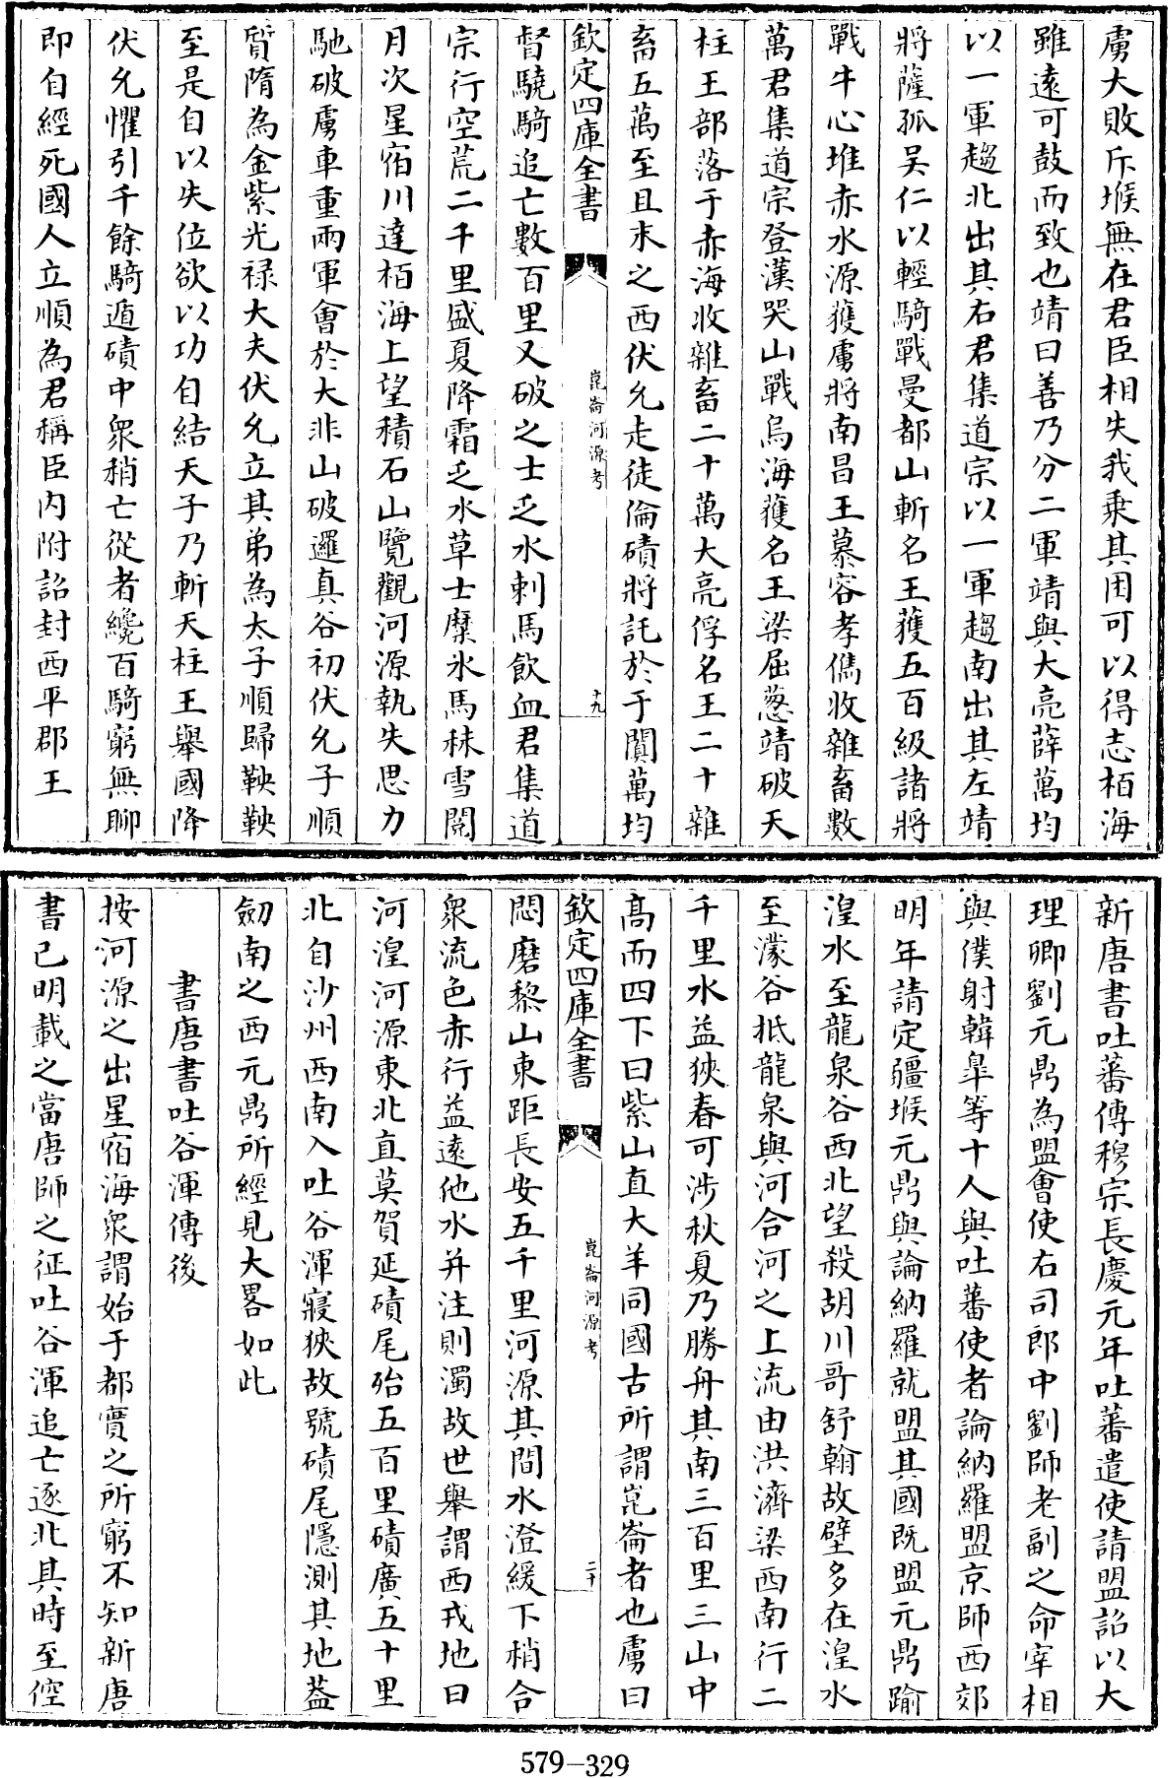 虜大敗斥堠無在君臣相失我乗其困可以得志栢海
雖逺可鼓而致也靖曰善乃分二軍靖與大亮薛萬均
以一軍趨北出其右君集道宗以一軍趨南出其左靖
將薩孤吴仁以輕騎戰曼都山斬名王獲五百級諸將
戰牛心堆赤水源獲虜將南昌王慕容孝儁收雜畜數
萬君集道宗登漢哭山戰烏海獲名王梁屈葱靖破天
柱王部落于赤海收雜畜二十萬大亮俘名王二十雜
畜五萬至且末之西伏允走徒倫磧將託於于闐萬均
欽定四庫全書
崑崙河源考
十九
督驍騎追亡數百里又破之士乏水刺馬飲血君集道
宗行空荒二千里盛夏降霜乏水草士糜氷馬秣雪閲
月次星宿川達栢海上望積石山覽觀河源執失思力
馳破虜車重兩軍會於大非山破邏真谷初伏允子順
質隋為金紫光禄大夫伏允立其弟為太子順歸鞅鞅
至是自以失位欲以功自結天子乃斬天柱王舉國降
伏允懼引千餘騎遁磧中衆稍亡從者纔百騎窮無聊
即自經死國人立順為君稱臣内附詔封西平郡王
新唐書吐蕃傳穆宗長慶元年吐蕃遣使請盟詔以大
理卿劉元鼎為盟會使右司郎中劉師老副之命宰相
與僕射韓臯等十人與吐蕃使者論納羅盟京師西郊
明年請定疆堠元鼎與論納羅就盟其國既盟元鼎踰
湟水至龍泉谷西北望殺胡川哥舒翰故壁多在湟水
至濛谷抵龍泉與河合河之上流由洪濟梁西南行二
千里水益狹春可涉秋夏乃勝舟其南三百里三山中
髙而四下曰紫山直大羊同國古所謂崑崙者也虜曰
欽定四庫全書
崑崙河源考
二十
悶磨黎山東距長安五千里河源其間水澄緩下稍合
衆流色赤行益逺他水并注則濁故世舉謂西戎地曰
河湟河源東北直莫賀延磧尾殆五百里磧廣五十里
北自沙州西南入吐谷渾寖狹故號磧尾隱測其地葢
劒南之西元鼎所經見大畧如此
書唐書吐谷渾傳後
按河源之出星宿海衆謂始于都實之所窮不知新唐
書已明載之當唐師之征吐谷渾追亡逐北其時至倥
579-329